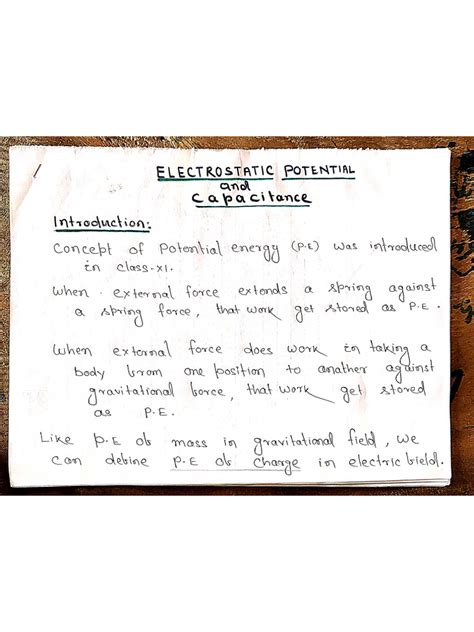 ELECTROSTATIC POTENTIAL
and
Capacitance
Introduction:
Concept of Potential energy (P.E) was introduced
in class-XI.
When external force extends a spring against
a spring force, that work get stored as P.E.
When external force does work in taking a
body from one position to another against
gravitational force, that work get stored
as P.E.
Like P.E of mass in gravitational field, we
can define P.E of charge in electric field.